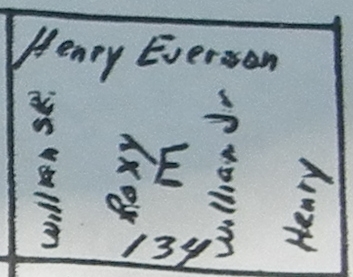 Henry Everson
William SR.
Roxy
E
William Jr
Henry
134